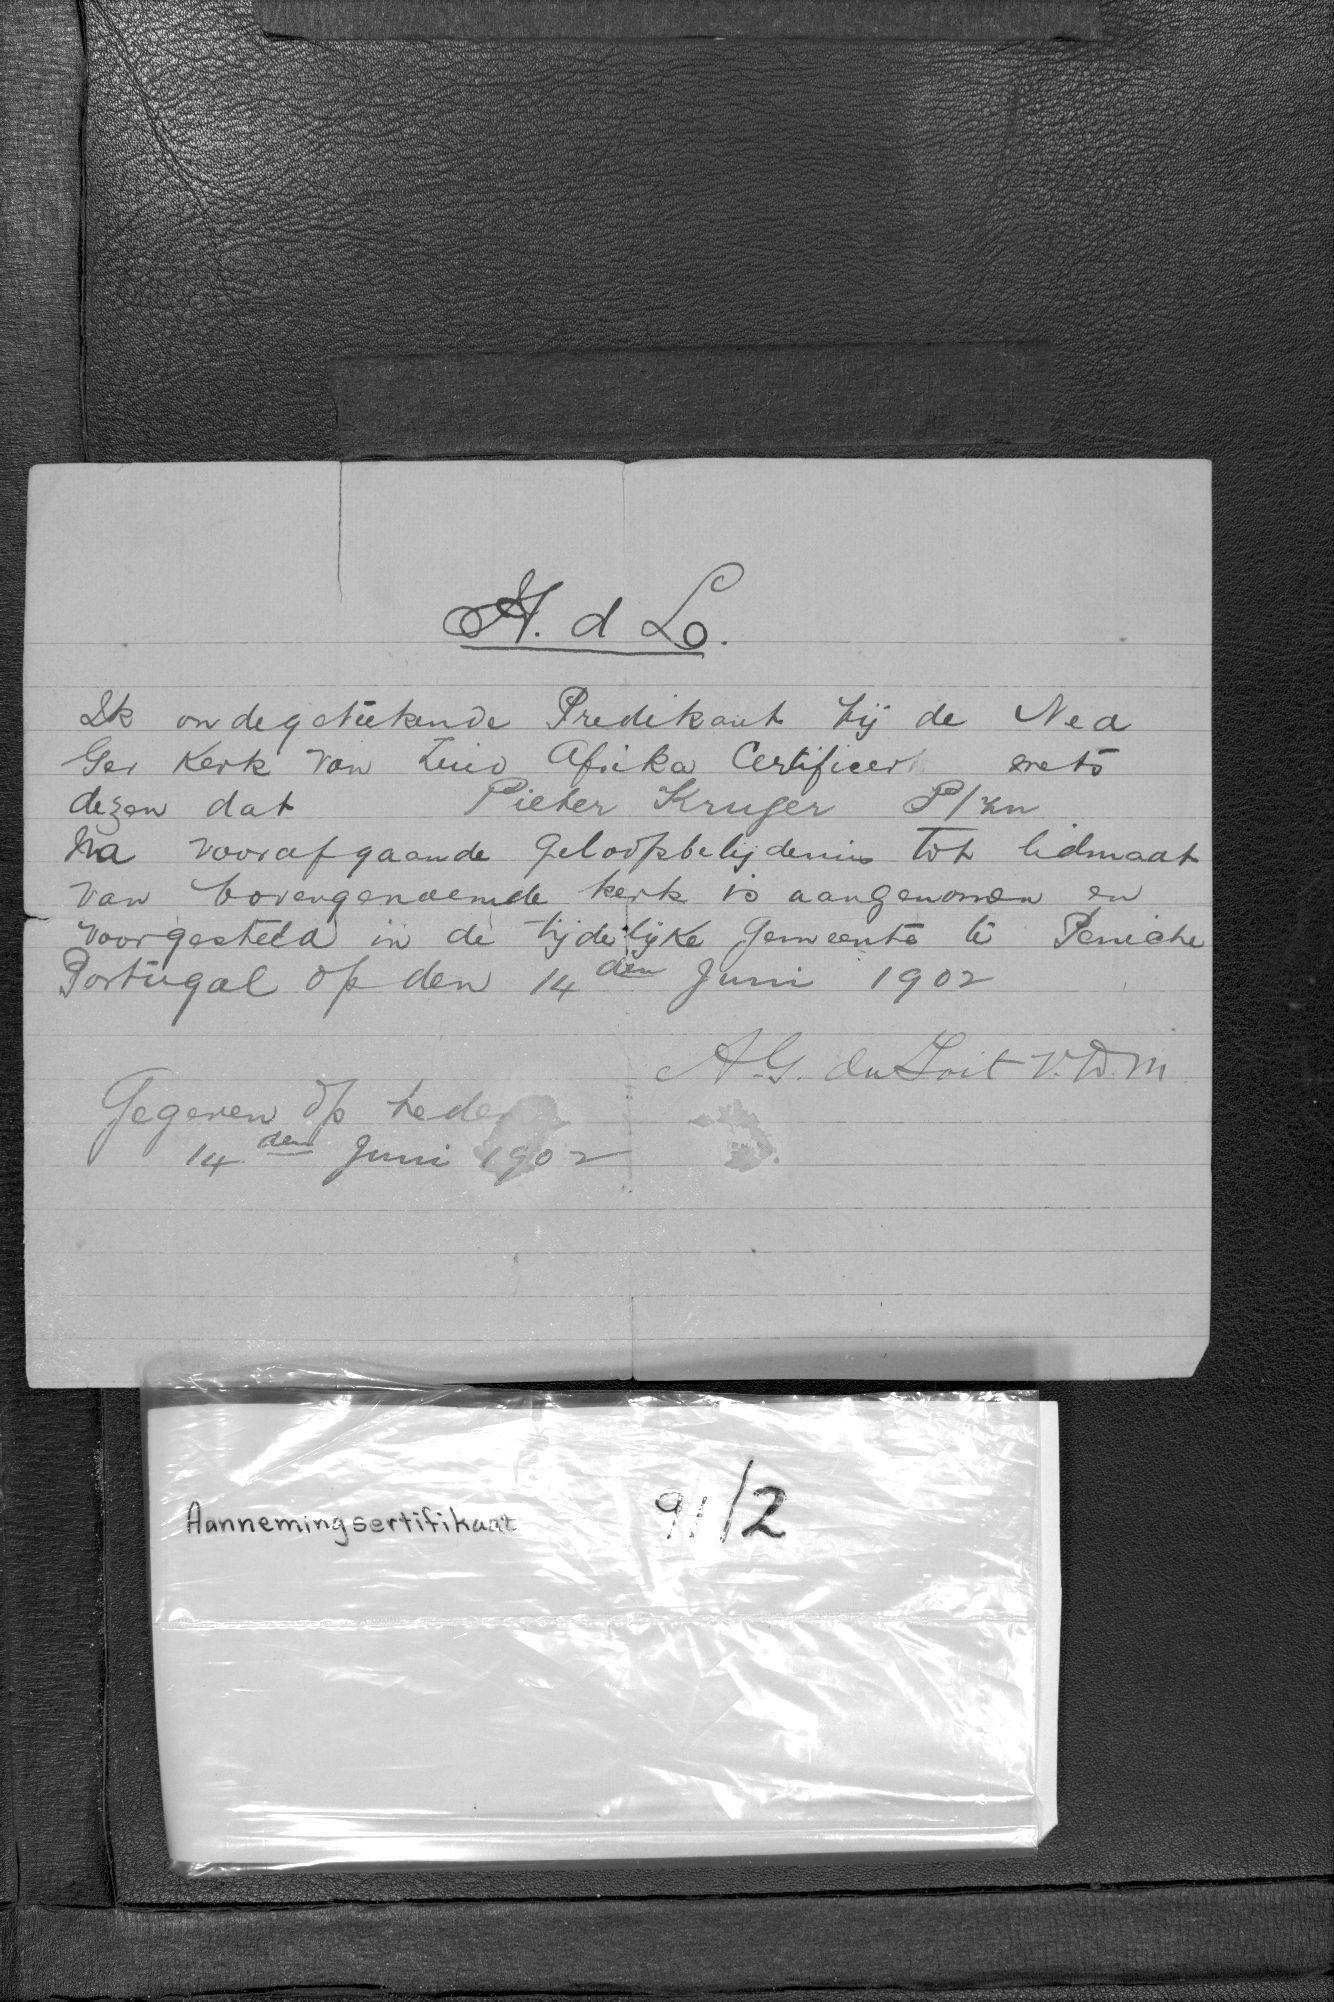 A. d L.
Ik ondegeteekende Predikant bij de Ned
Ger Kerk van Zuid Afrika Certificert mets
dezen dat Pieter Kruger P/zn
Na voorafgaande geloofsbelijdenis tot lidmaat
van bovengenoemde kerk is aangenomen en
voorgesteld in de tijdelijke Gemeente te Peniche
Portugal op den 14 den Juni 1902
A.G. du Toit V.D.M.
Gegeven op heden
14 den Juni 1902
Aannemingsertifikaat 91/2